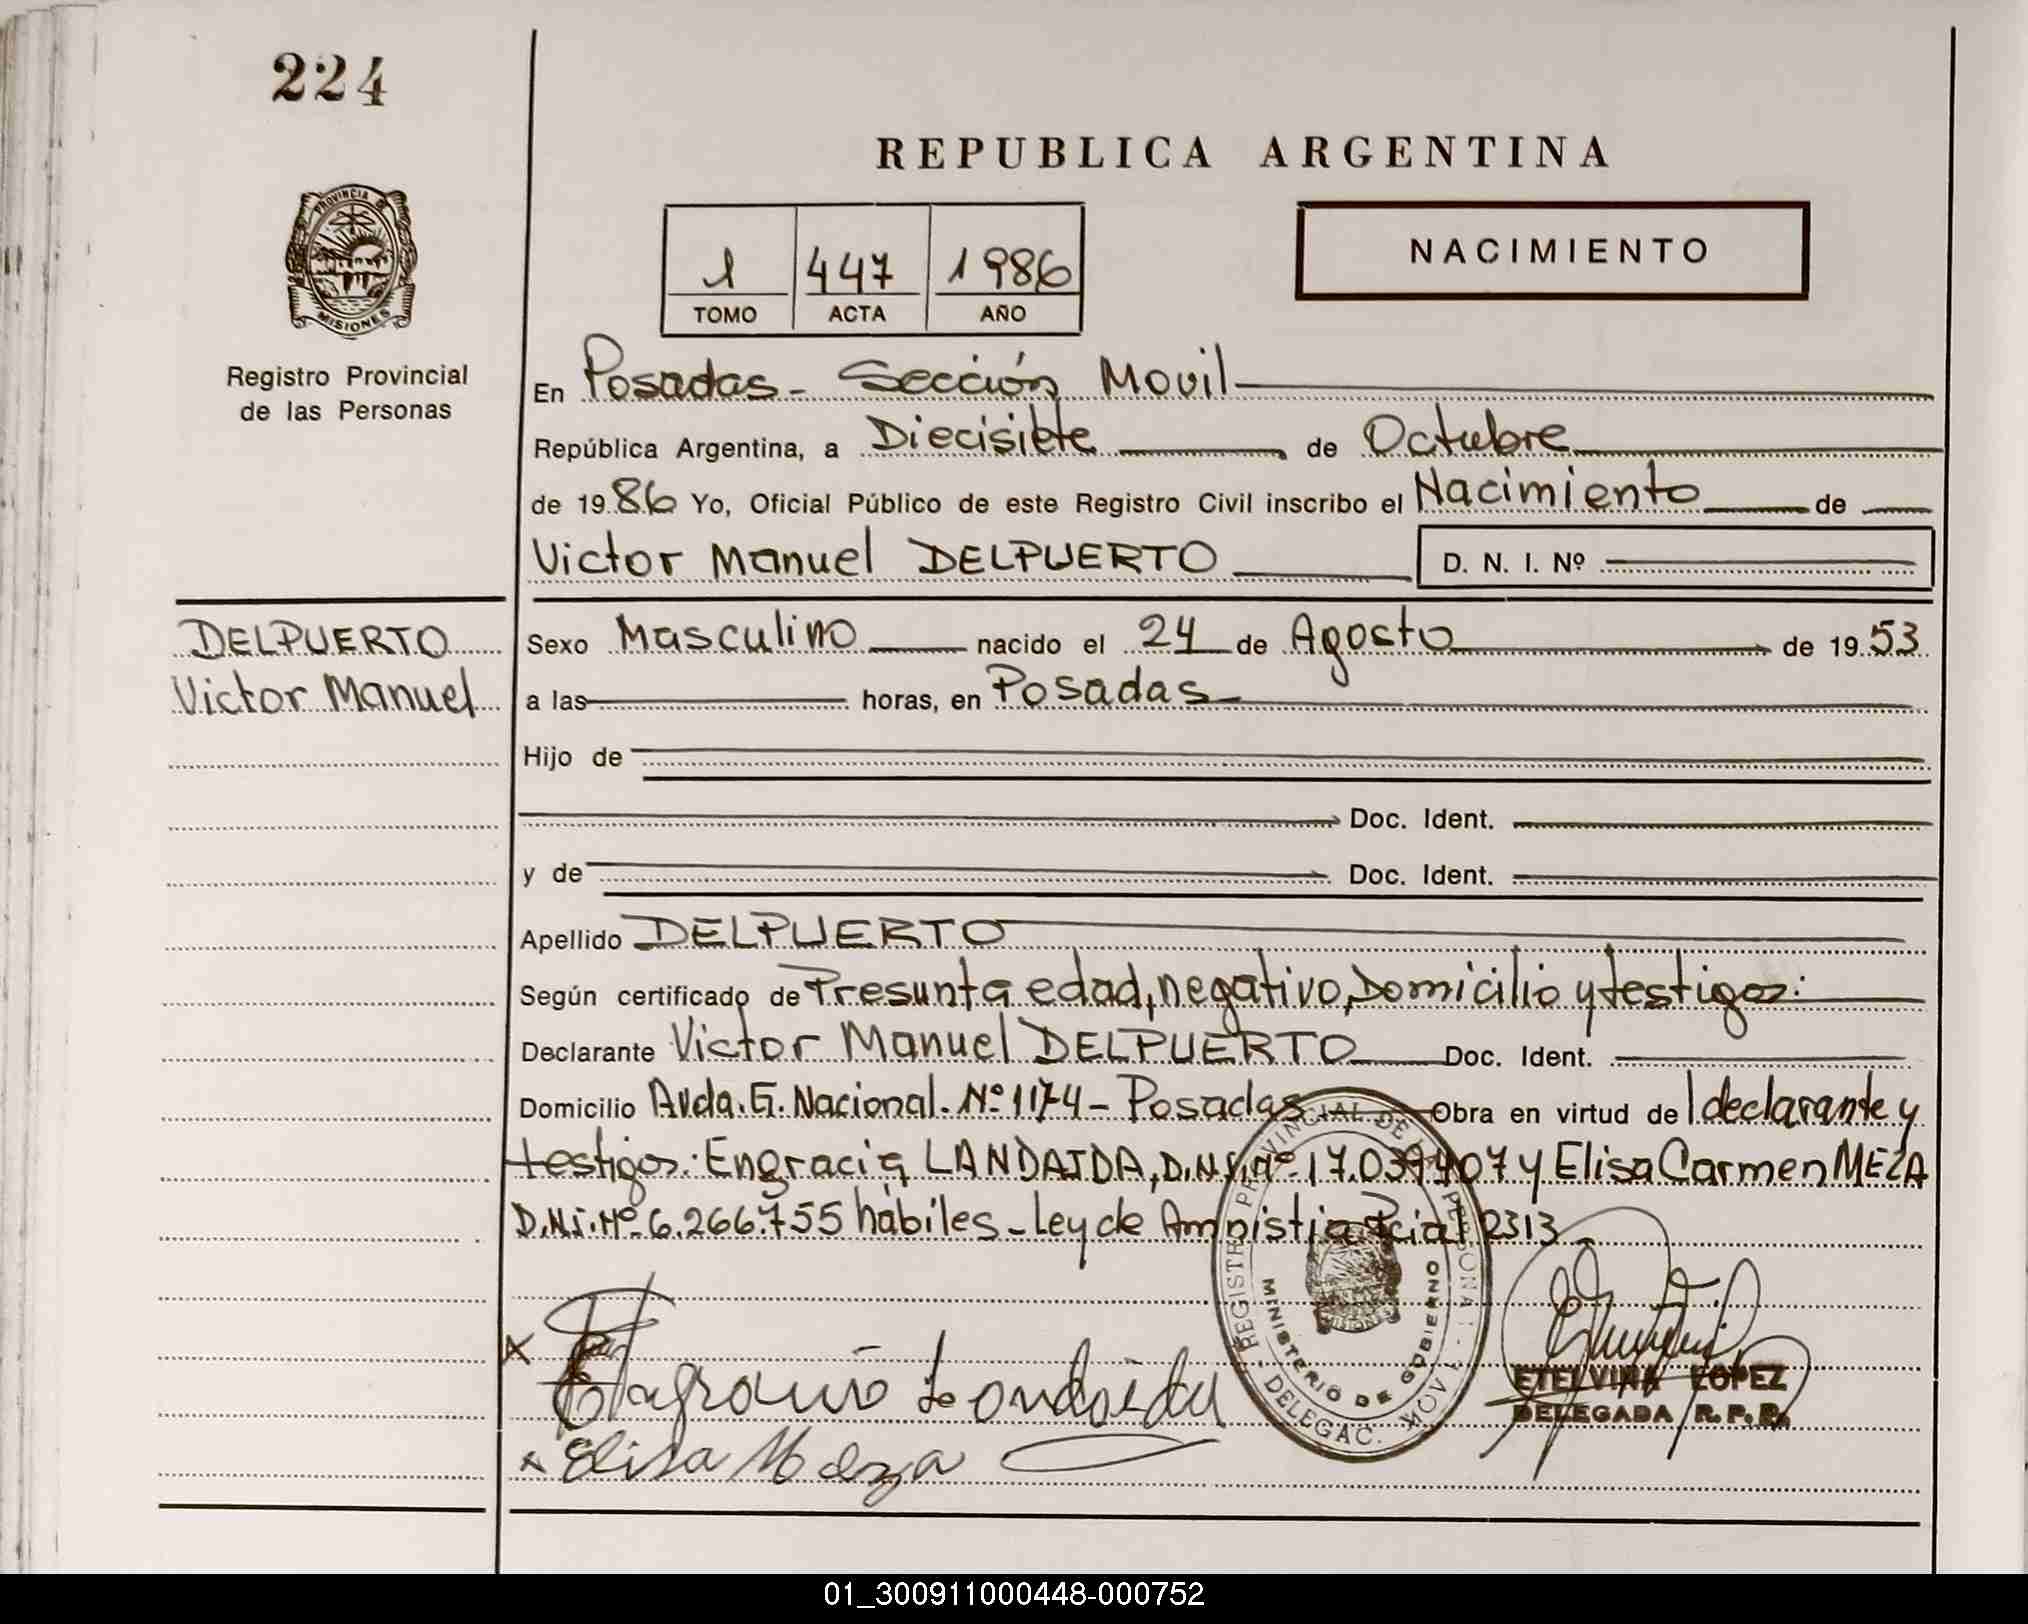 224
REPUBLICA ARGENTINA
PROVINCIA DE
MISIONES
Registro Provincial
de las Personas
1 447 1986
TOMO ACTA AÑO
NACIMIENTO
En Posadas - Sección Movil
República Argentina, a Diecisiete de Octubre
de 1986 Yo, Oficial Público de este Registro Civil inscribo el Nacimiento de
Victor Manuel DELPUERTO D. N. I. Nº
DELPUERTO
Victor Manuel
Sexo Masculino nacido el 24 de Agosto de 1953
a las horas, en Posadas
Hijo de
Doc. Ident.
y de Doc. Ident.
Apellido DELPUERTO
Según certificado de Presunta edad, negativo, Domicilio y testigos:
Declarante Victor Manuel DELPUERTO Doc. Ident.
Domicilio Avda. G. Nacional. Nº 1174 - Posadas Obra en virtud de l declarante y
testigos: Engracia LANDAIDA, D.N.I. Nº 17.039.407 y Elisa Carmen MEZA
D.N.I. Nº 6.266.755 hábiles - Ley de Amnistia Pcial 2313
REGISTRO PROVINCIAL DE LAS PERSONAS
MINISTERIO DE GOBIERNO
DELEGAC. MOVIL
Landaida
Elisa Meza
ETELVINA LOPEZ
DELEGADA R.P.P.
01_300911000448-000752